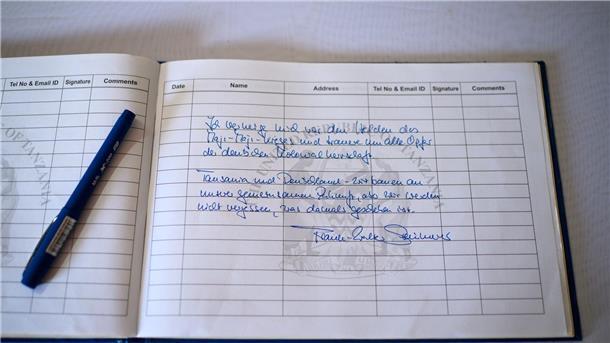 Tel No & Email ID Signature Comments
Date Name Address Tel No & Email ID Signature Comments
Ich verneige mich vor den Helden des
Maji-Maji-Krieges und trauere um alle Opfer
der deutschen Kolonialherrschaft.
Tansania und Deutschland - wir bauen an
unserer gemeinsamen Zukunft, aber wir werden
nicht vergessen, was damals geschehen ist.
Frank-Walter Steinmeier
OF TANZANIA